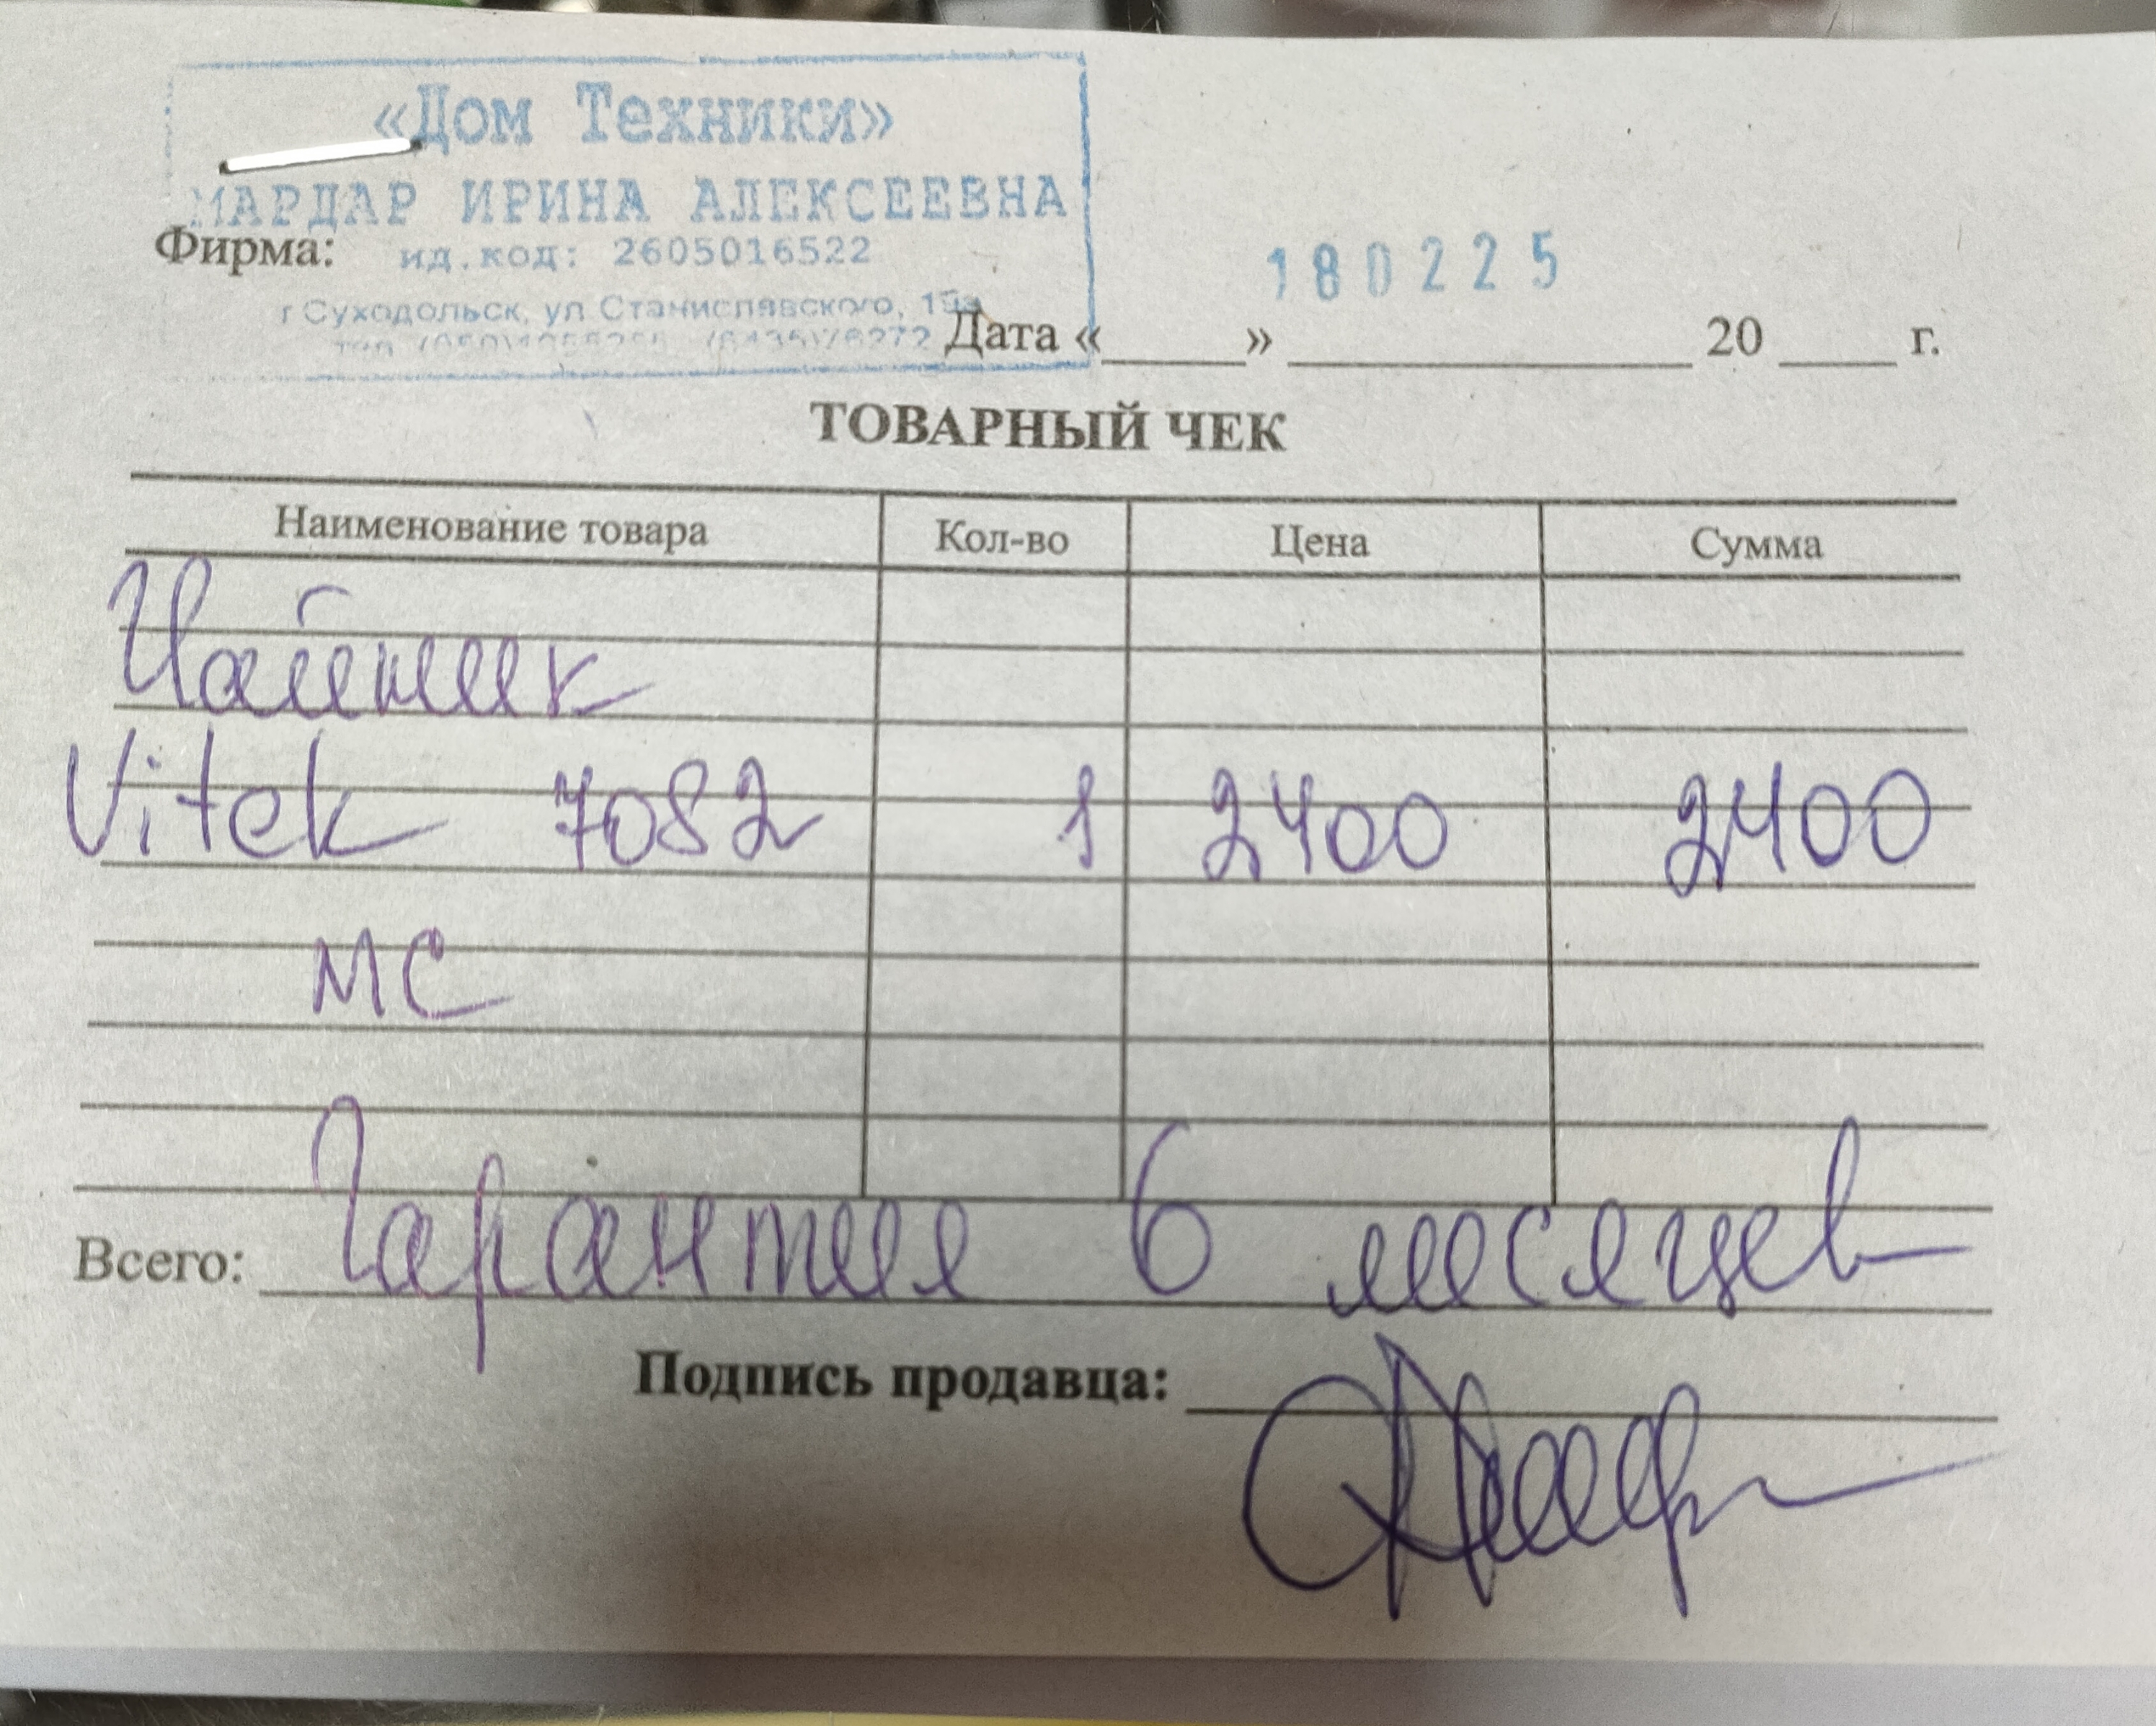 «Дом Техники»
МАРДАР ИРИНА АЛЕКСЕЕВНА
Фирма: ид.код: 2605016522
180225
г Суходольск, ул Станиславского,
Дата «____» ____________ 20 ____ г.
ТОВАРНЫЙ ЧЕК
Наименование товара Кол-во Цена Сумма
Чайник
Vitek 7082 1 2400 2400
МС
Всего: Гарантия 6 месяцев
Подпись продавца: